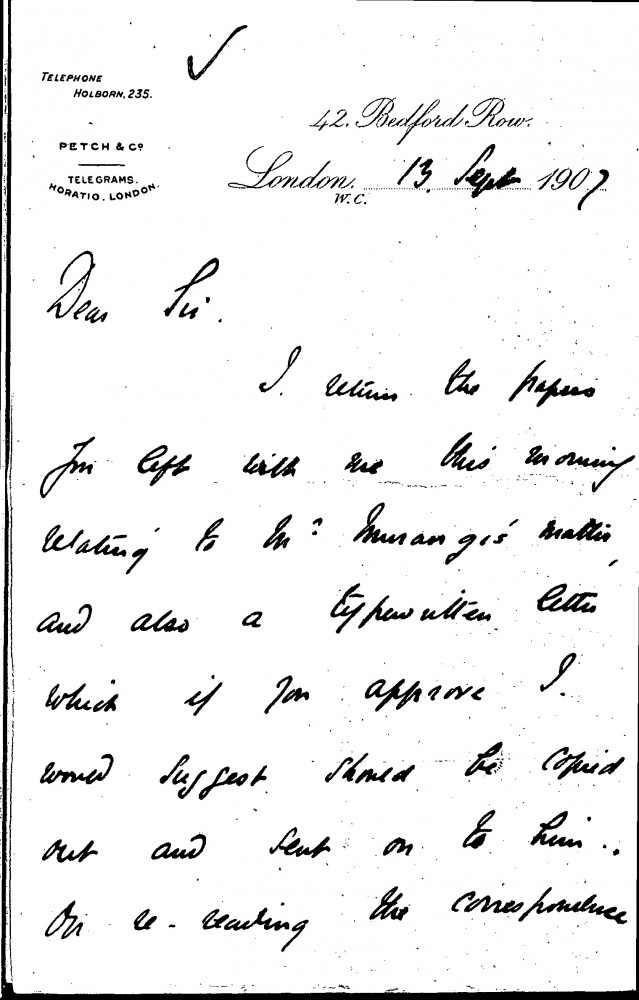 TELEPHONE
HOLBORN, 235.
PETCH & Cº
TELEGRAMS.
HORATIO. LONDON.
42. Bedford Row.
London. 13 Sept 1907
W.C.
Dear Sir.
I return the papers
you left with me this morning
relating to Mr. matter,
and also a typewritten letter
which if you approve I
would suggest should be copied
out and sent on to him.
On re-reading the correspondence